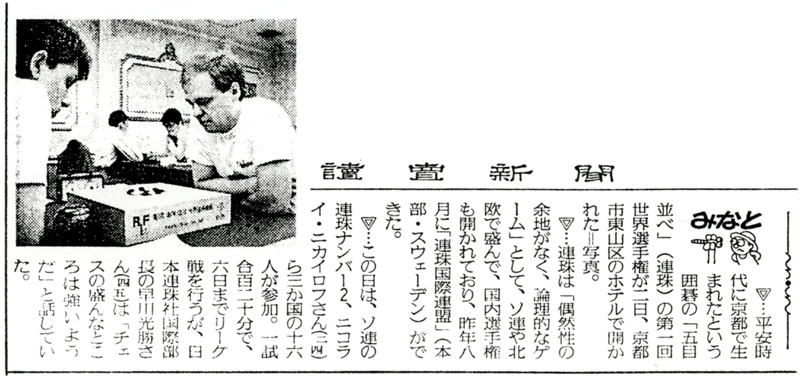 讀賣新聞
みなと
▽…平安時
代に京都で生
まれたという
囲碁の「五目
並べ」（連珠）の第一回
世界選手権が二日、京都
市東山区のホテルで開か
れた＝写真。
▽…連珠は「偶然性の
余地がなく、論理的なゲ
ーム」として、ソ連や北
欧で盛んで、国内選手権
も開かれており、昨年八
月に「連珠国際連盟」（本
部・スウェーデン）がで
きた。
▽…この日は、ソ連の
連珠ナンバー2、ニコラ
イ・ニカイロフさん（三四）
ら三か国の十六
人が参加。一試
合百二十分で、
六日までリーグ
戦を行うが、日
本連珠社国際部
長の早川光勝さ
ん（四五）は「チェ
スの盛んなとこ
ろは強いよう
だ」と話してい
た。
RIF